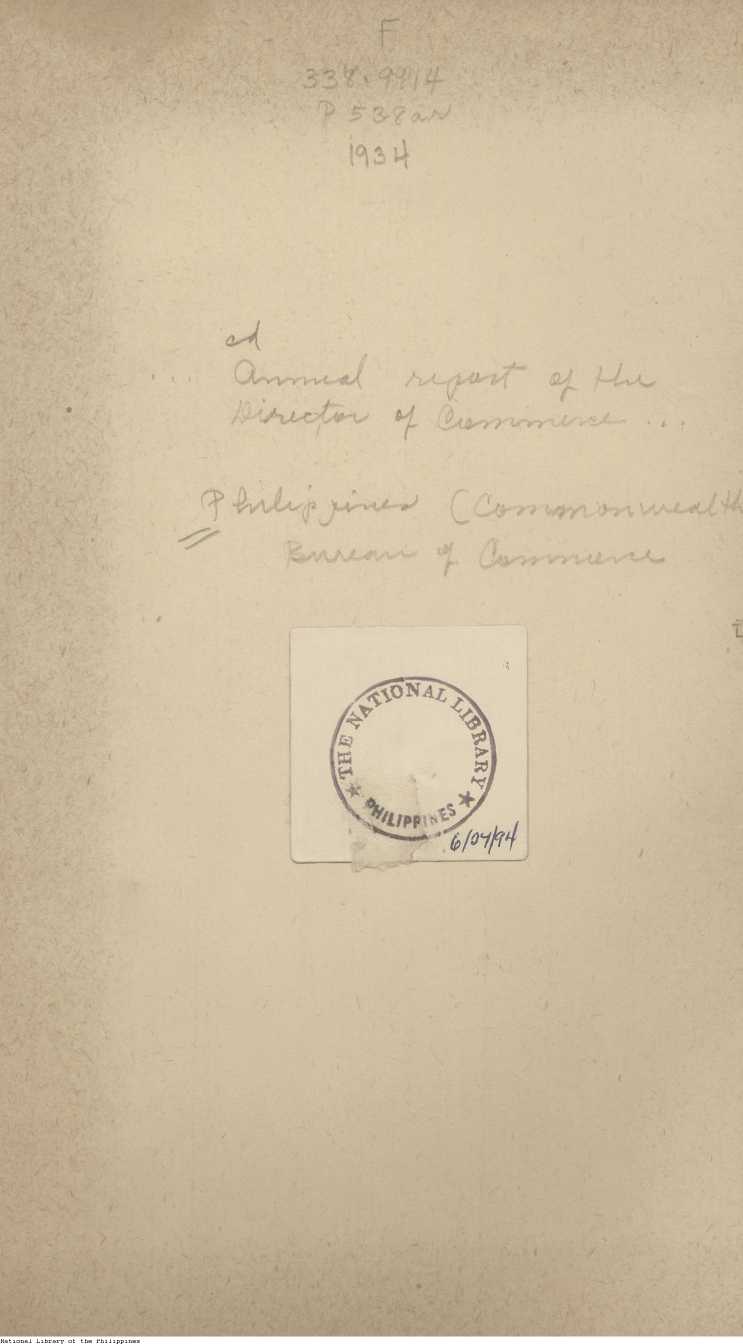 F
338.9914
P 538ar
1934
cd
... Annual report of the
Director of Commerce ...
Philippines (Commonwealth
Bureau of Commerce
THE NATIONAL LIBRARY
PHILIPPINES
6/07/94
National Library of the Philippines